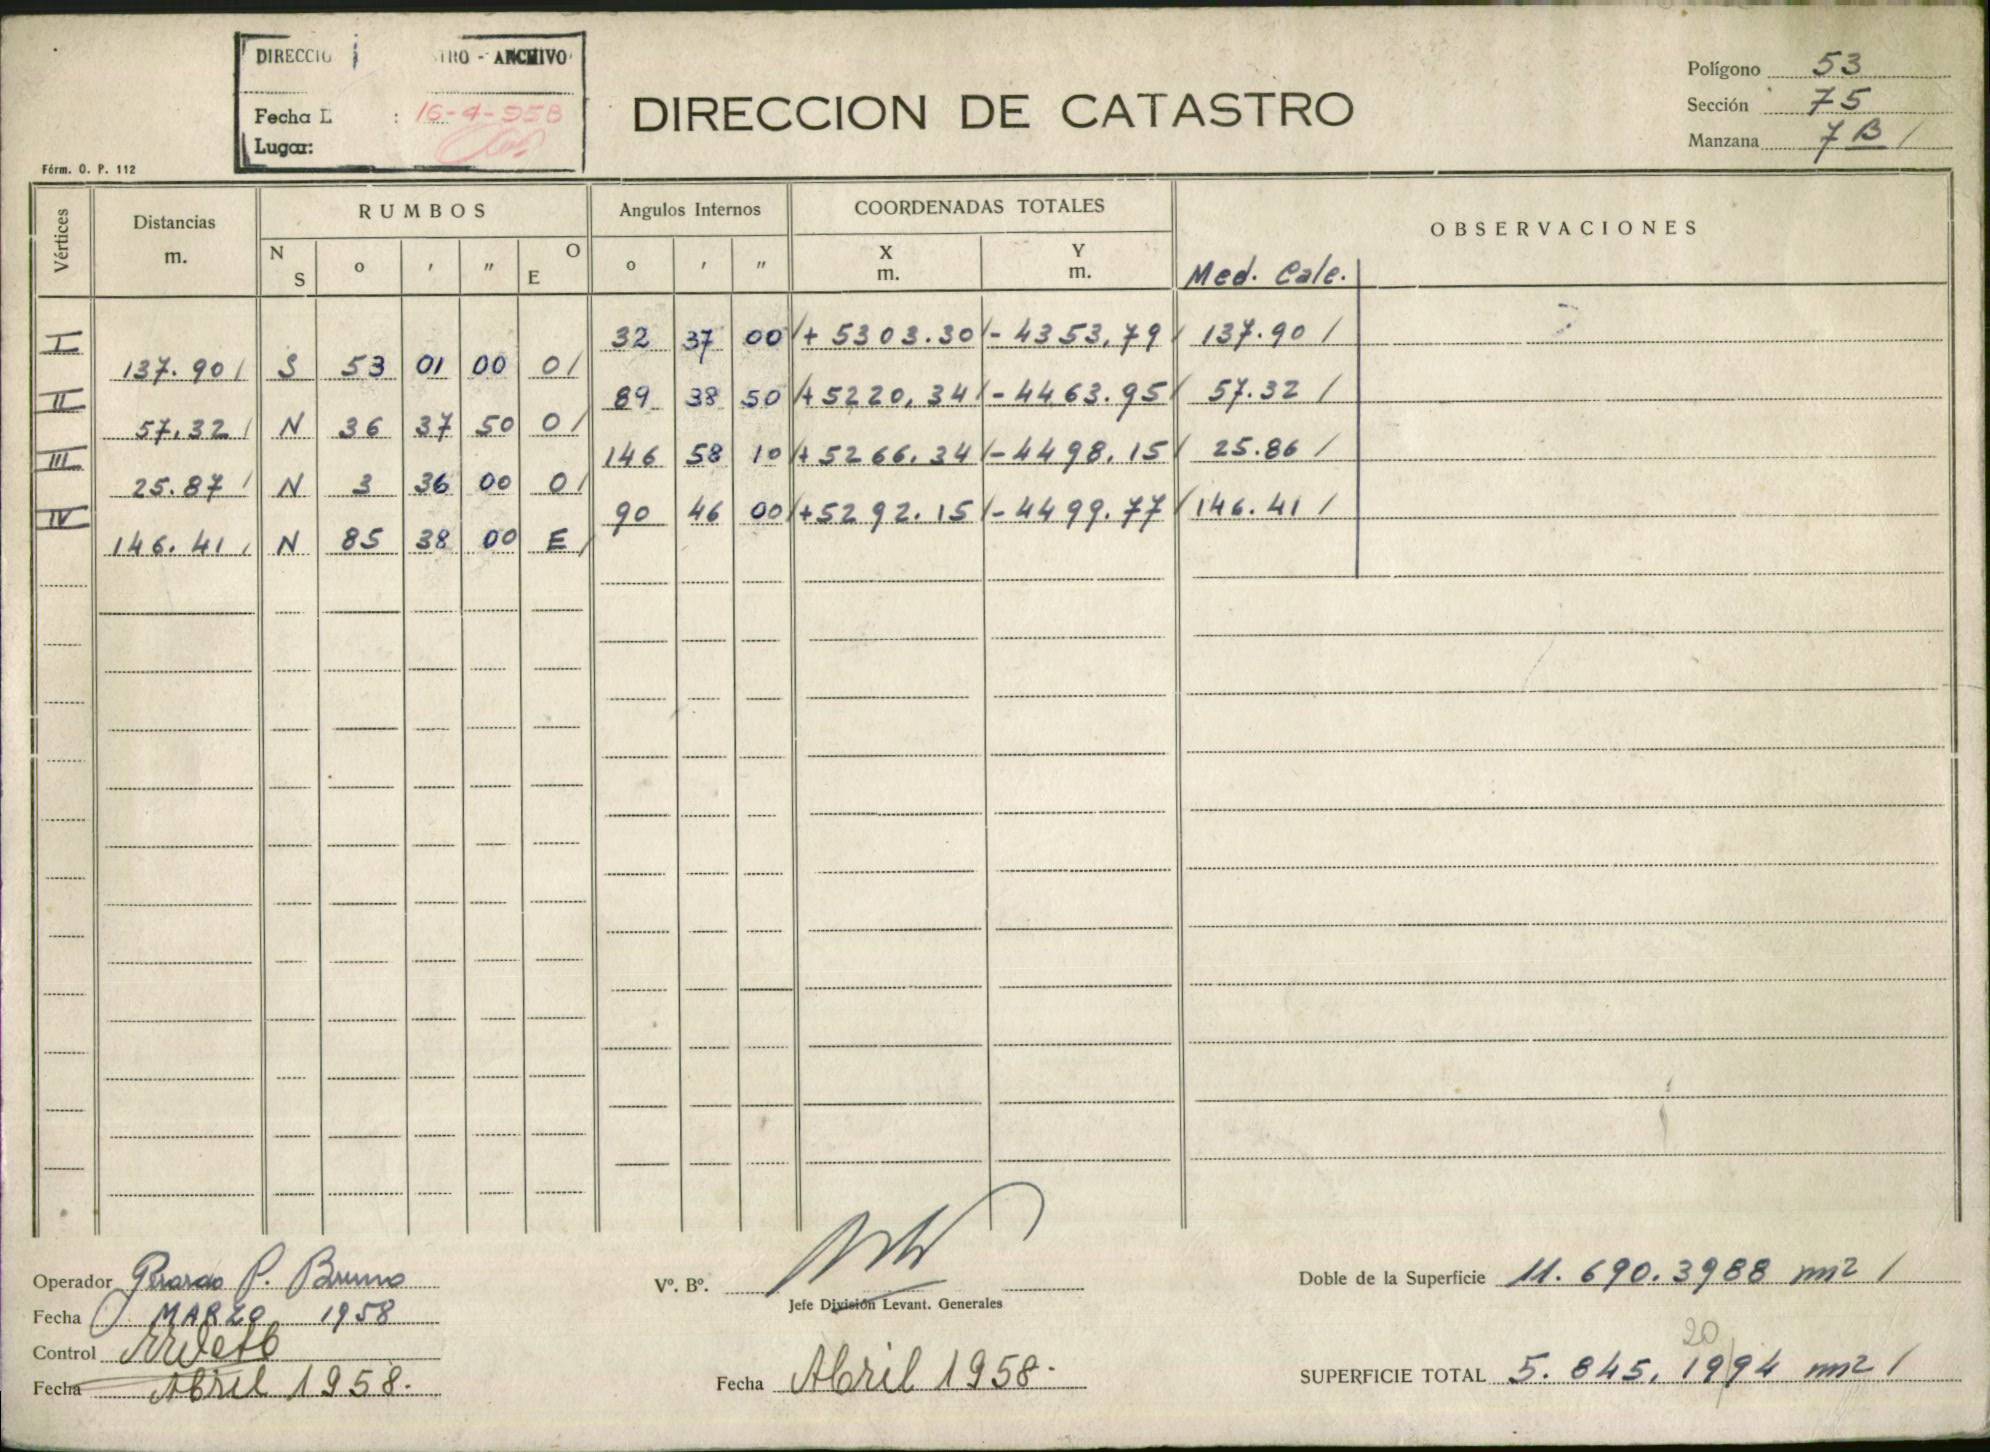 DIRECCIO TRO - ARCHIVO
Fecha : 16-4-958
Lugar:
Férm. O. P. 112
DIRECCION DE CATASTRO
Polígono 53
Sección 75
Manzana 7 B /
Vértices Distancias m. RUMBOS Angulos Internos COORDENADAS TOTALES OBSERVACIONES
N S o ' " E O o ' " X m. Y m. Med. Calc.
I 32 37 00 / + 5303.30 / - 4353,79 / 137.90 /
137.90 / S 53 01 00 O /
II 89 38 50 / + 5220,34 / - 4463.95 / 57.32 /
57,32 / N 36 37 50 O /
III 146 58 10 / + 5266,34 / - 4498,15 / 25.86 /
25.87 / N 3 36 00 O /
IV 90 46 00 / + 5292.15 / - 4499.77 / 146.41 /
146.41 / N 85 38 00 E /
Operador Gerardo P. Bruno
Fecha MARZO 1958
Control
Fecha Abril 1958.
Vº. Bº.
Jefe División Levant. Generales
Fecha Abril 1958.
Doble de la Superficie 11.690.3988 m2 /
20
SUPERFICIE TOTAL 5.845,1994 m2 /